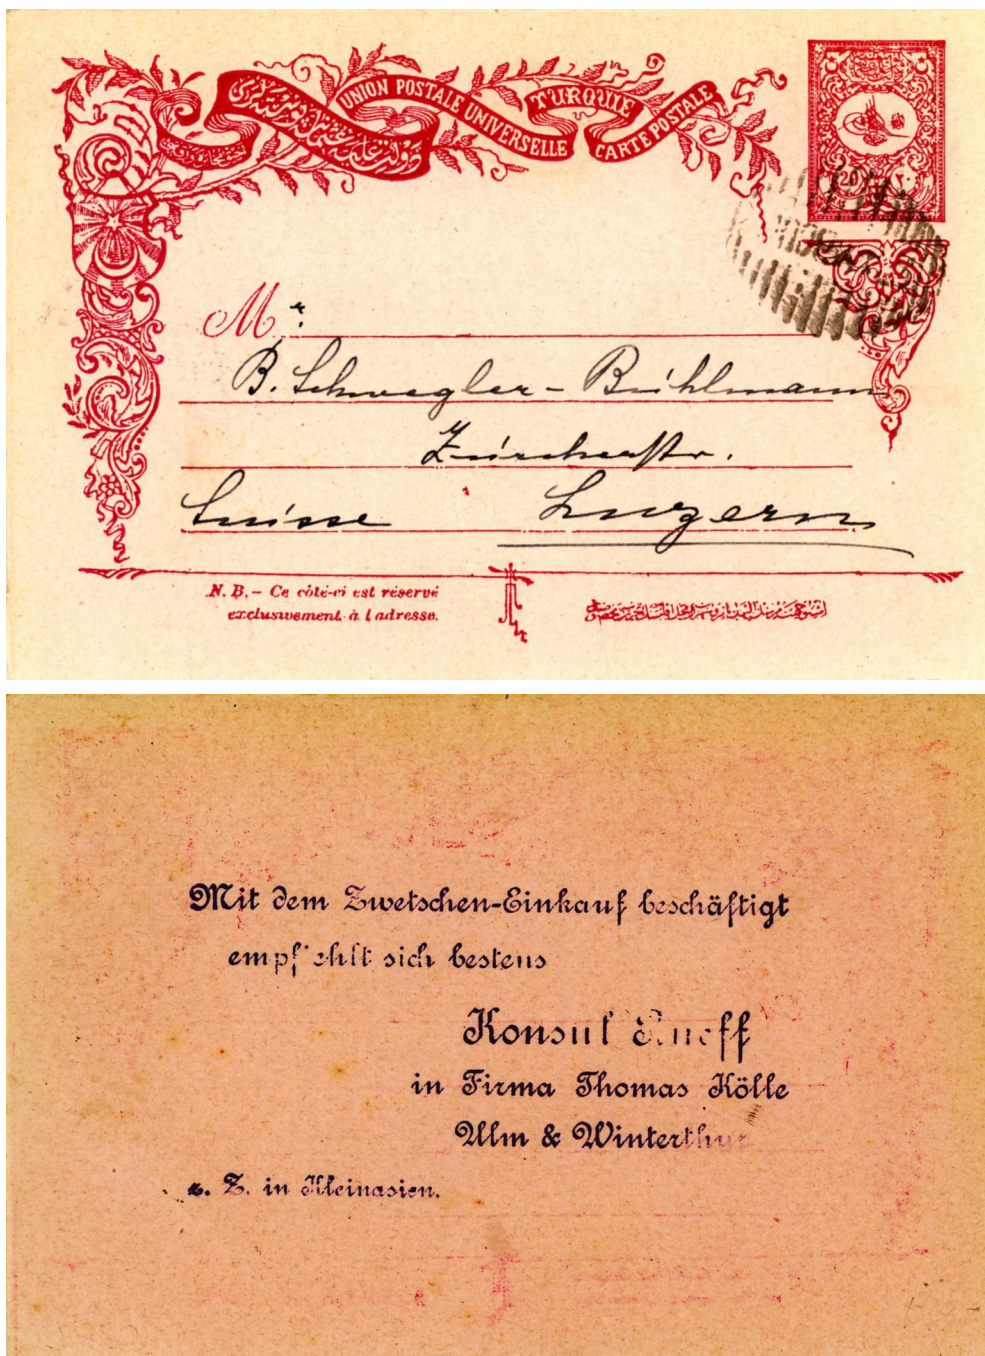 دولت عليۀ عثمانیه پوسته لری
UNION POSTALE UNIVERSELLE
TURQUIE
CARTE POSTALE
20
٢٠
Mr.
B. Schwegler-Bühlmann
Zürcherstr.
Suisse Luzern
N. B. – Ce côté-ci est réservé
exclusivement à l'adresse.
Mit dem Zwetschen-Einkauf beschäftigt
empfiehlt sich bestens
Konsul Rueff
in Firma Thomas Kölle
Ulm & Winterthur
z. Z. in Kleinasien.